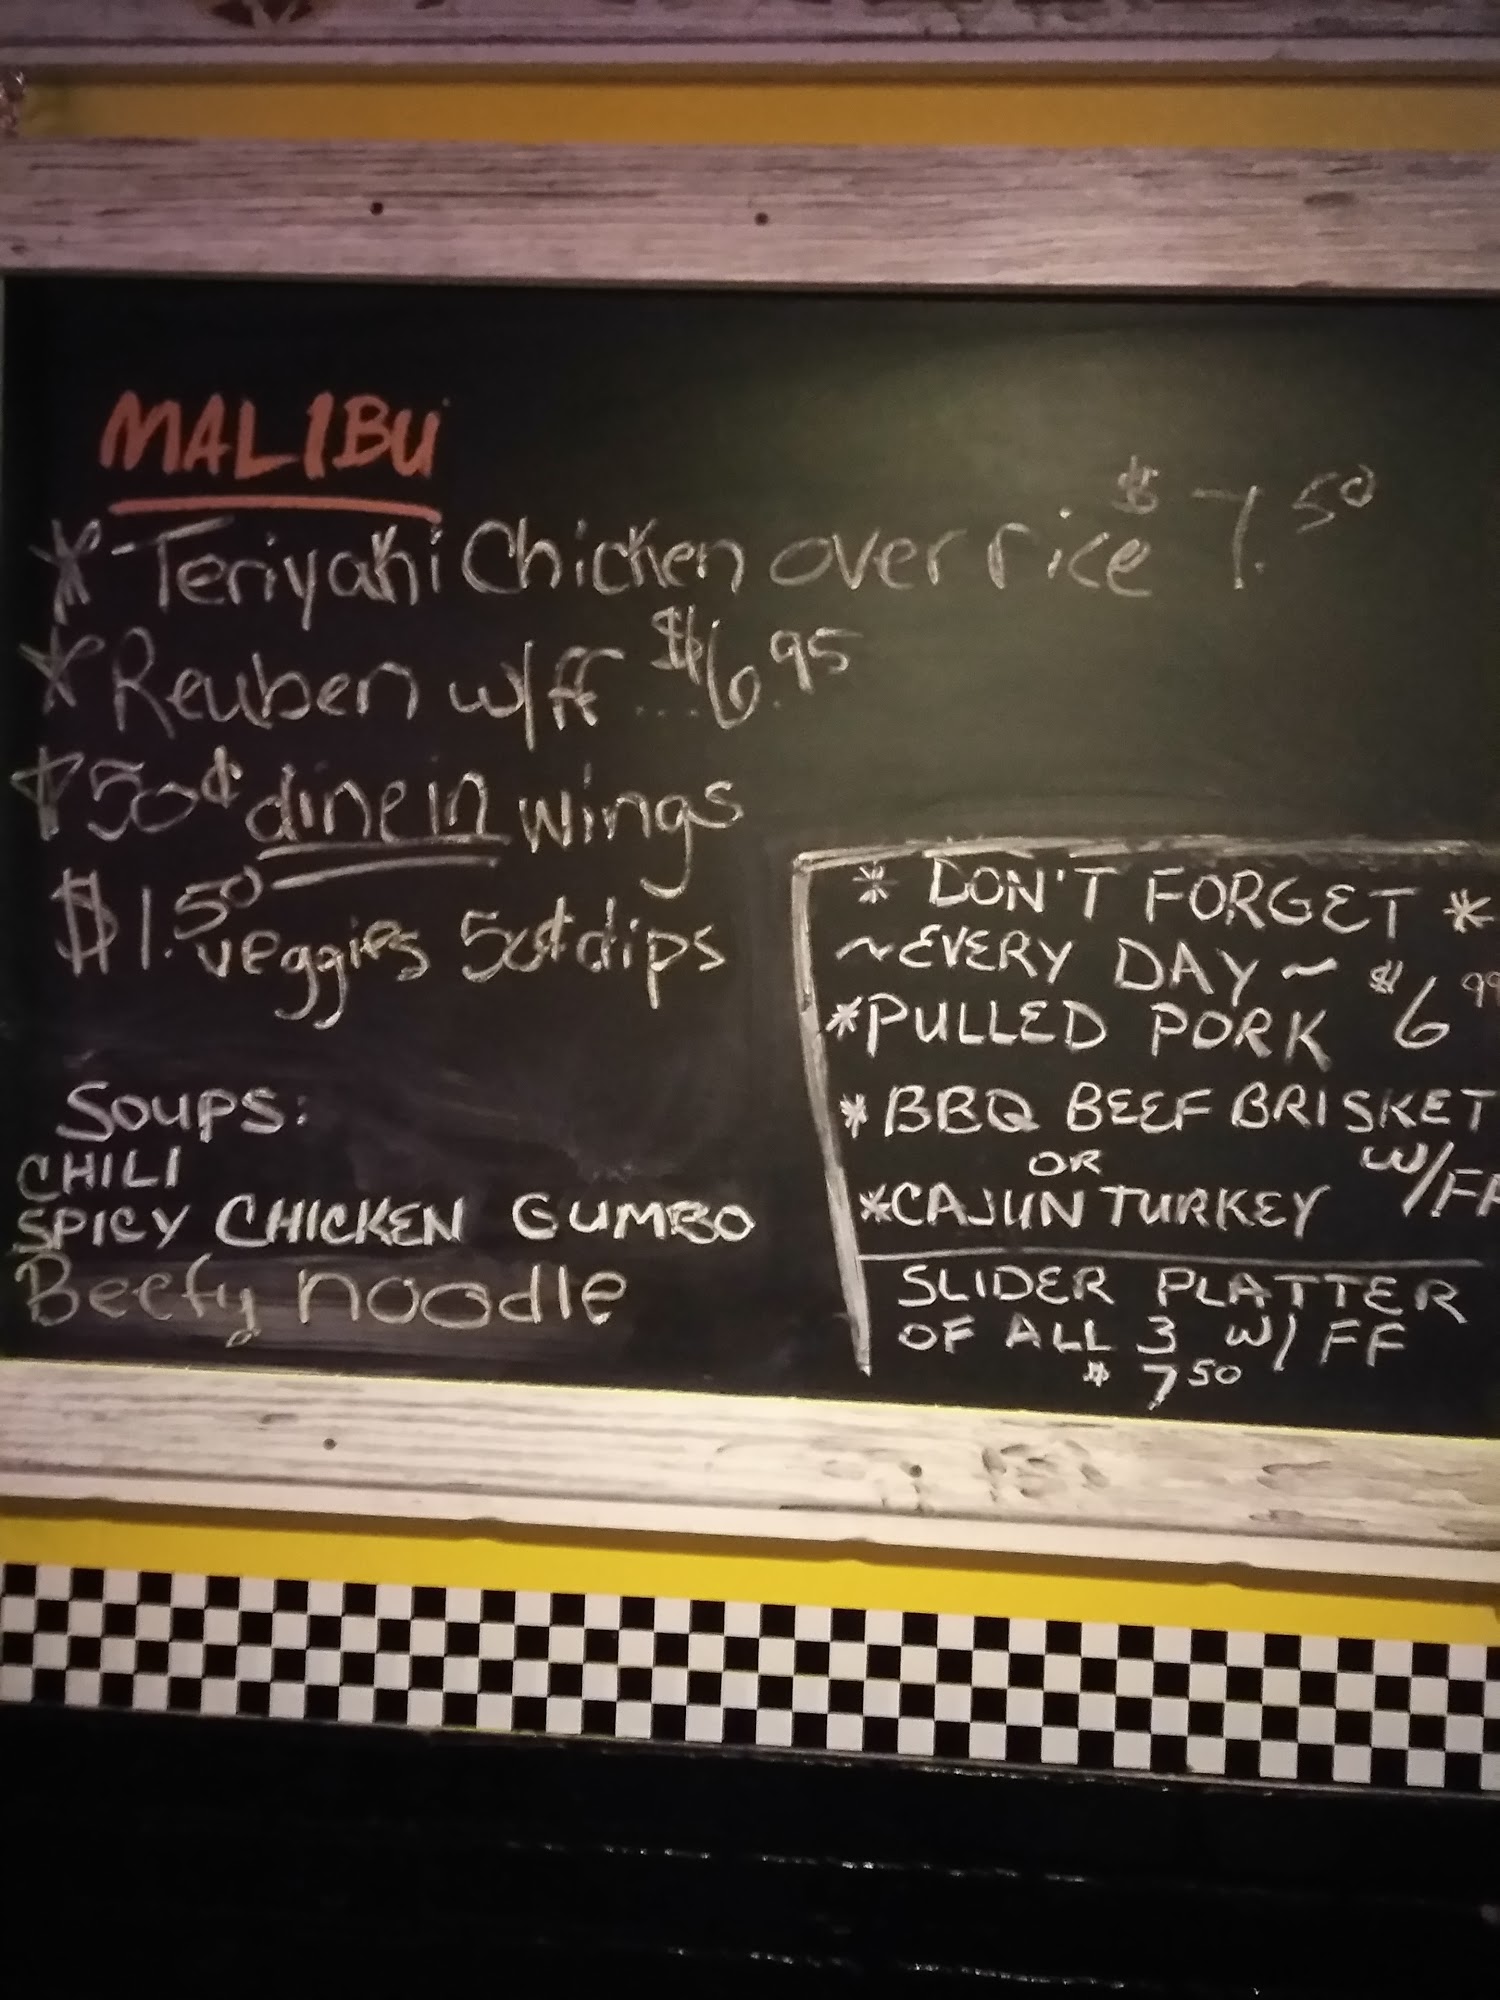 MALIBU
* Teriyaki Chicken over rice $7.50
* Reuben w/ff ....$6.95
* 50¢ dine in wings
$1.50 veggies 50¢ dips
Soups:
CHILI
SPICY CHICKEN GUMBO
Beefy noodle
* DON'T FORGET *
~EVERY DAY~
*PULLED PORK $6 99
*BBQ BEEF BRISKET
OR W/FF
*CAJUN TURKEY
SLIDER PLATTER
OF ALL 3 W/ FF
$7 50